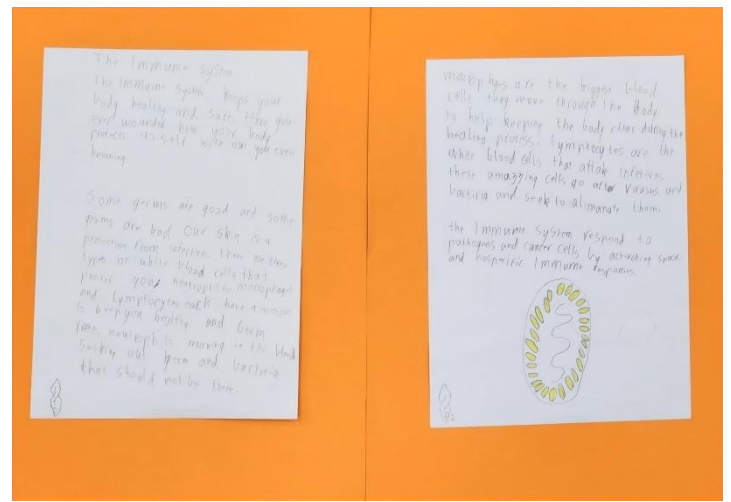 The Immune system
The Immune system keeps your
body healthy and safe. Have you
ever wounded how your body
protects its self with out you even
knowing
Some germs are good and some
germs are bad. Our skin is a
protection from infection. There are three
types of white blood cells that
protect you, neutrophils, Macrophages
and Lymphocytes each have a mission
to keep you healthy and Germ
free. neutrophils moving in the blood
Seeking out germ and bacteria
that should not be there.
macophages are the bigger blood
cells they move through the Body
to help keeping the body clear during the
healing process. Lymphocytes are the
White blood cells that attak infections
these amazzing cells go after Viruses and
bacteria and seek to alimanate them.
the Immune System respond to
pathogens and cancer cells by activating
and Immune